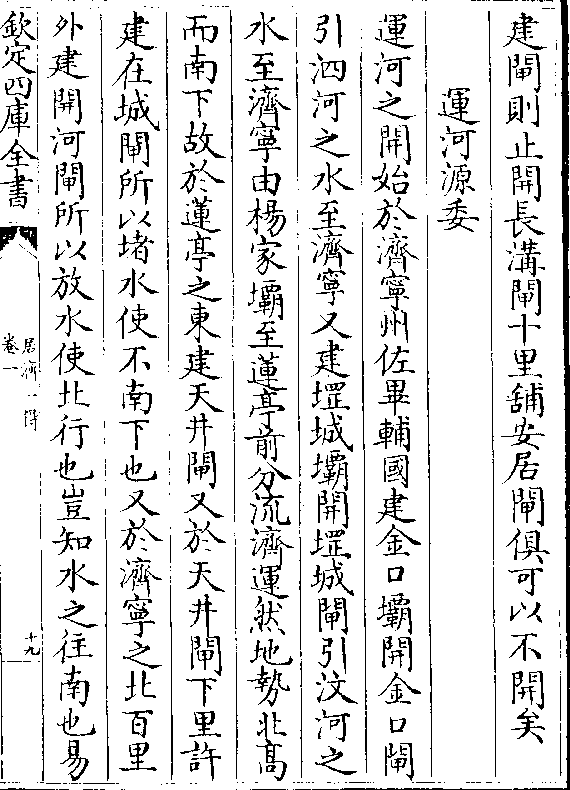 建閘則止開長溝閘十里舖安居閘俱可以不開矣
運河源委
運河之開始於濟寧州佐畢輔國建金口壩開金口閘
引泗河之水至濟寧又建堽城壩開堽城閘引汶河之
水至濟寧由楊家壩至蓮亭前分流濟運然地勢北髙
而南下故於蓮亭之東建天井閘又於天井閘下里許
建在城閘所以堵水使不南下也又於濟寧之北百里
外建開河閘所以放水使北行也豈知水之往南也易
欽定四庫全書
居濟一得
卷一
十九